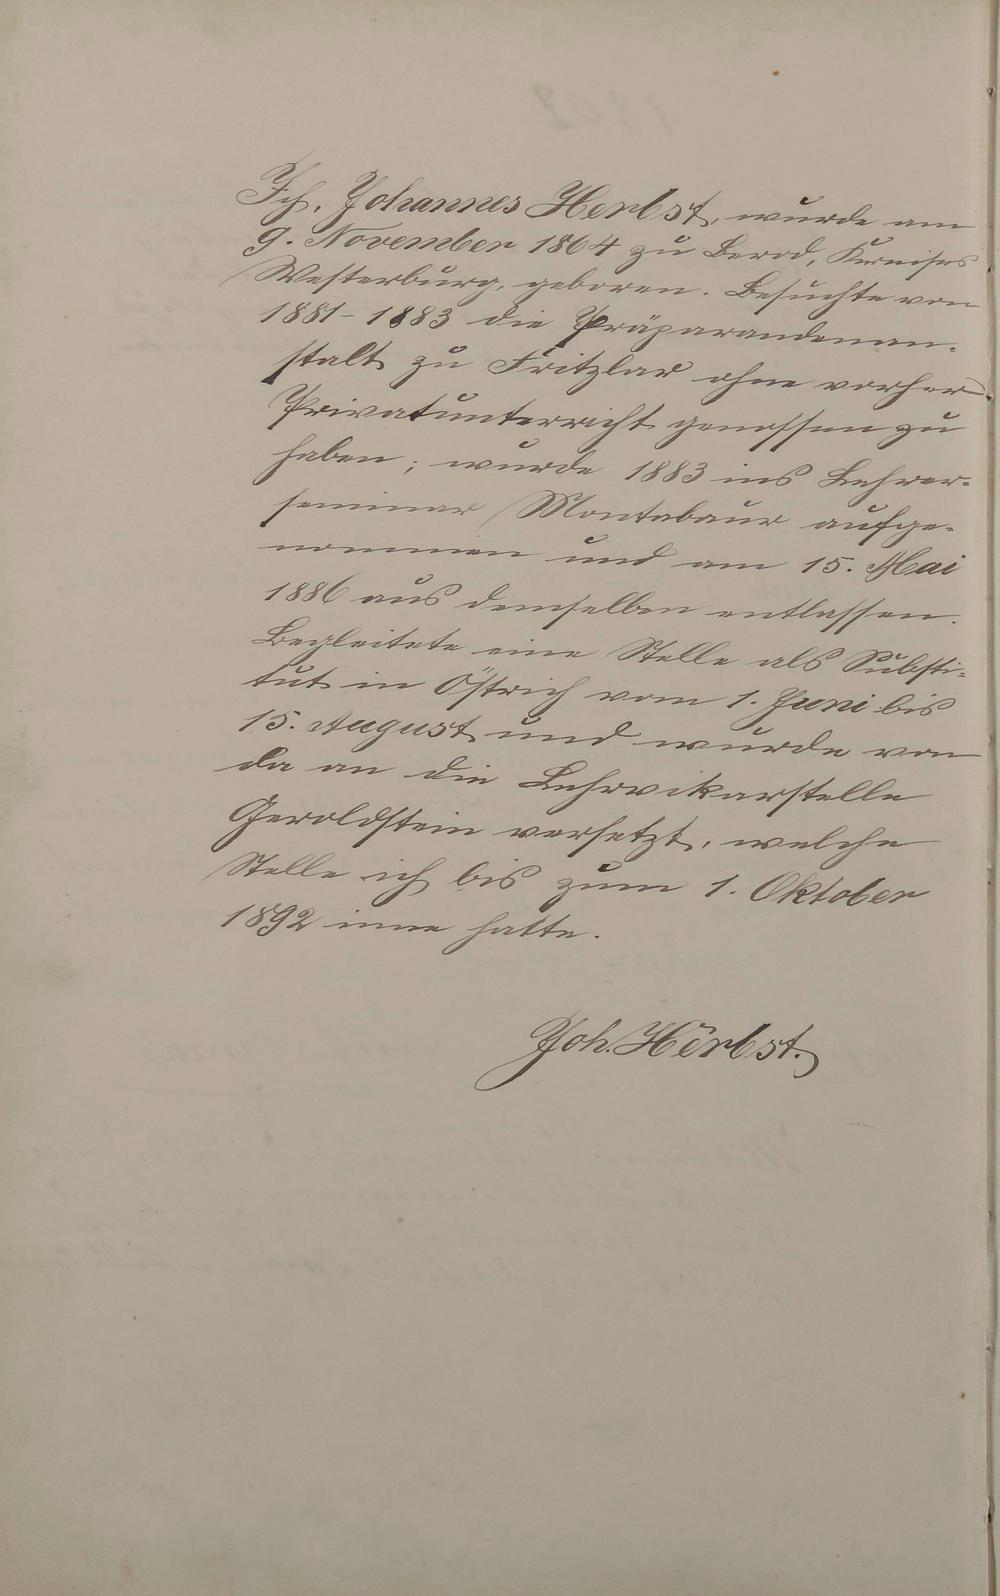 Ich, Johannes Herbst, wurde am
9. November 1864 zu Berod, Kreises
Westerburg, geboren. Besuchte von
1881-1883 die Präparandenan-
stalt zu Fritzlar ohne vorher
Privatunterricht genossen zu
haben; wurde 1883 ins Lehrer-
seminar Montabaur aufge-
nommen und am 15. Mai
1886 aus demselben entlassen.
Begleitete eine Stelle als Substi-
tut in Östrich vom 1. Juni bis
15. August und wurde von
da an die Lehrvikarstelle
Geroldstein versetzt, welche
Stelle ich bis zum 1. Oktober
1892 inne hatte.
Joh. Herbst.